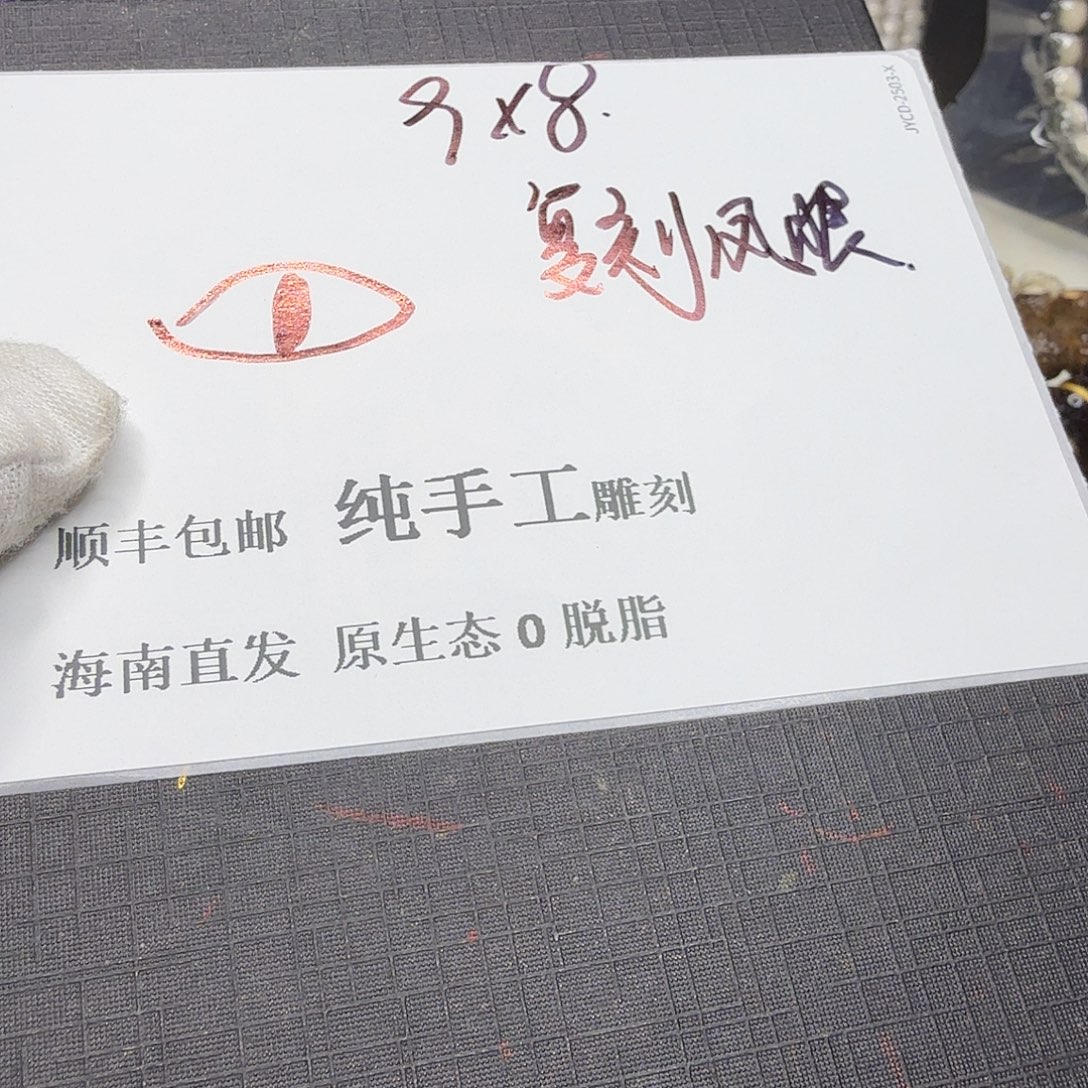 9×8.
JYCD-2503-X
复刻凤眼.
顺丰包邮 纯手工雕刻
海南直发 原生态0脱脂